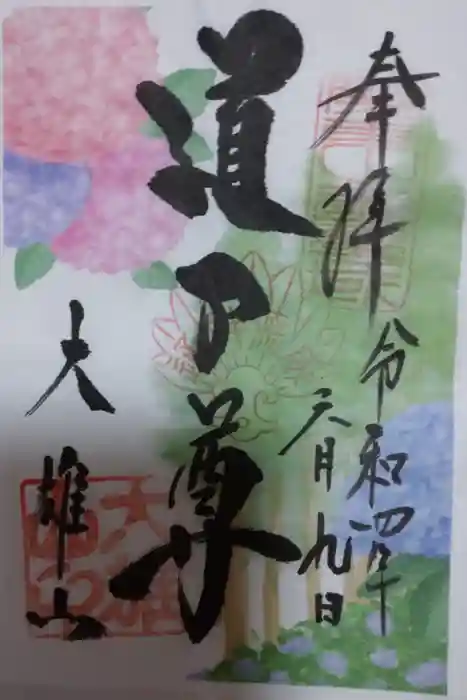 奉拝
令和四年
六月九日
道了尊
大雄山